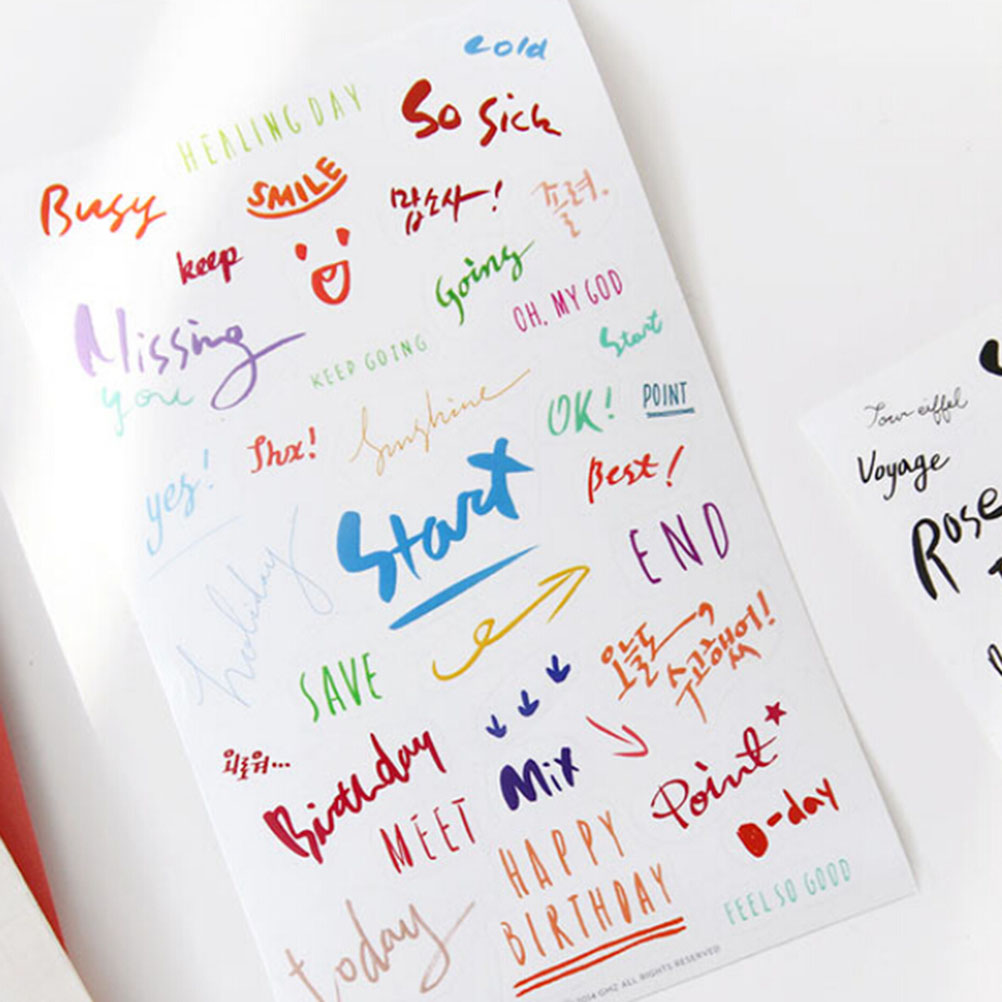 cold
HEALING DAY
So Sick
Busy
SMILE
맙소사!
졸려.
keep
Going
OH, MY GOD
Missing
you
KEEP GOING
Start
yes!
Thx!
Sunshine
OK!
POINT
Start
Best!
holiday
END
SAVE
오늘도
수고했어!
외로워...
Birthday
Mix
Point
MEET
D-day
HAPPY
BIRTHDAY
FEEL SO GOOD
today
2014 GMZ ALL RIGHTS RESERVED
Tour eiffel
Voyage
Rose